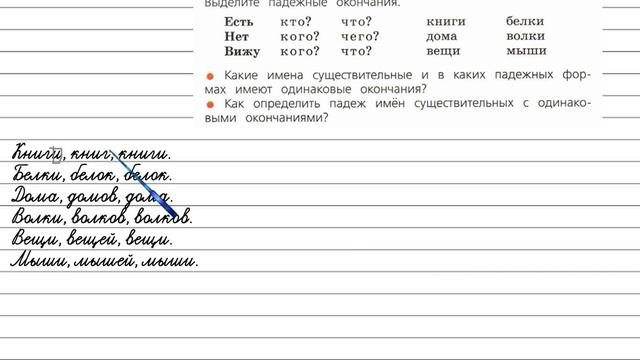 Выделите падежные окончания.
Есть кто? что? книги белки
Нет кого? чего? дома волки
Вижу кого? что? вещи мыши
Какие имена существительные и в каких падежных фор-
мах имеют одинаковые окончания?
Как определить падеж имён существительных с одинако-
выми окончаниями?
Книги, книг, книги.
Белки, белок, белок.
Дома, домов, дома.
Волки, волков, волков.
Вещи, вещей, вещи.
Мыши, мышей, мыши.